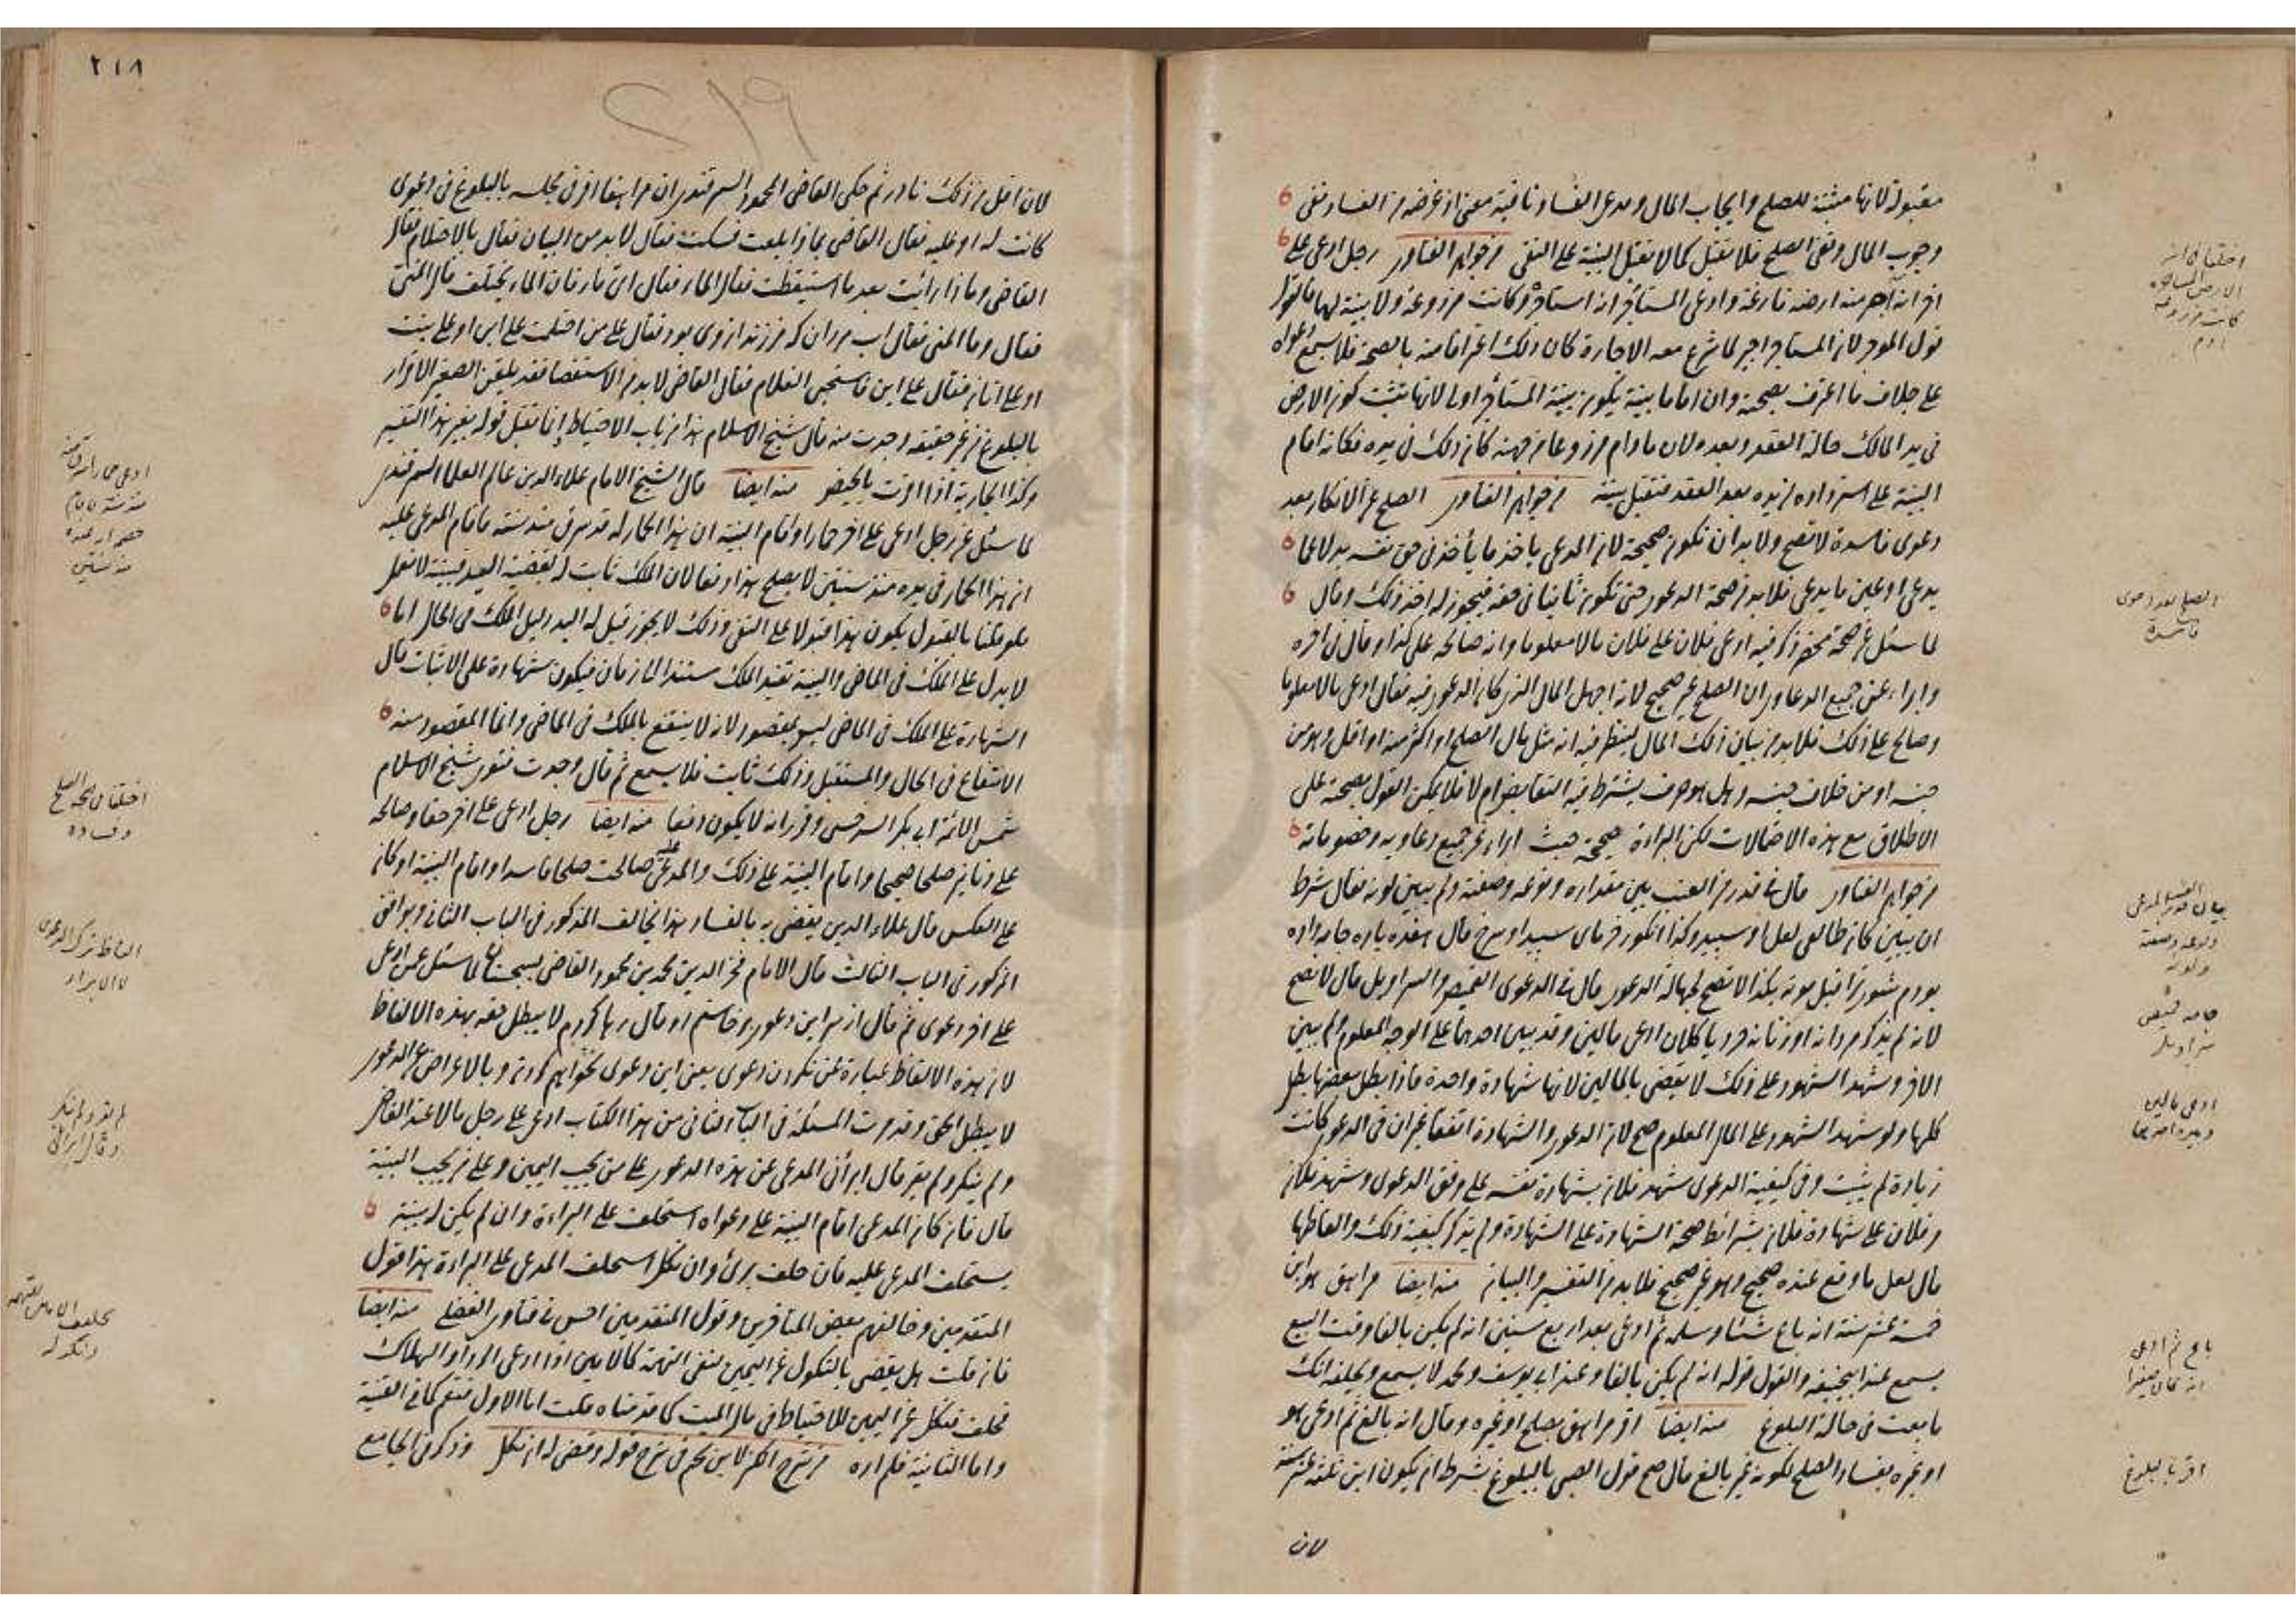 مقبولة لانها مثبتة للصلح وايجاب المال ومدعي الفساد نافية معنى اذ غرضه من الفساد نفي
وجوب المال ونفي الصلح فلا تقبل كما لا تقبل البينة على النفي من جواهر الفتاوى رجل ادعى على
اخر انه آجر منه ارضه فارغة وادعى المستأجر انه استأجره وكانت مزروعة ولا بينة لهما فالقول
قول الموجر لان المستأجر لما شرع معه الاجارة كان ذلك اعترافا منه بالصحة فلا يسمع دعواه
على خلاف ما اعترف بصحته وان اقاما بينة يكون بينة المستأجر اولى لانها تثبت كون الارض
في يد المالك حالة العقد وبعده لان ما دام مزروعا من جهته كان ذلك في يده فكانه اقام
البينة على استرداده من يده بعد العقد فتقبل بينته من جواهر الفتاوى الصلح عن الانكار بعد
دعوى فاسدة لا تصح ولا بد ان تكون صحيحة لان المدعي ياخذ ما يأخذ في حق نفسه بدلا عما
يدعي او عين ما يدعي فلا بد من صحة الدعوى حتى تكون ثابتا في حقه فيجوز له اخذ ذلك وقال
لما سئل عن صحة محضر ذكر فيه ادعى فلان على فلان مالا معلوما وانه صالحه على كذا وقال في اخره
وابراء عن جميع الدعاوى ان الصلح غير صحيح لانه اجهل المال الذي كان الدعوى فيه فقال ادعى مالا معلوما
وصالح على ذلك فلا بد من بيان ذلك المال لينظر فيه انه مثل مال الصلح او اكثر منه او اقل وهو من
جنسه او من خلاف جنسه وهل هو صرف يشترط فيه التقابض ام لا فلا يمكن القول بصحته على
الاطلاق مع هذه الاحتمالات لكن البراءة صحيحة حيث ابراء عن جميع دعاويه وخصوماته
من جواهر الفتاوى قال في قدر من العنب بين مقداره ونوعه وصفته ولم يبين لونه فقال شرط
ان يبين كان طالفي لعل او سپيد وكذا انكور خرماى سپيد او سرخ قال هفده پاره جامه داده
بودم شوى ترا قبل موته بكذا لا تصح لجهالة الدعوى قال في الدعوى القميص والسراويل قال لا تصح
لانه لم يذكر مردانه او زنانه خرد يا كلان ادعى مالين وقد بين احدهما على الوجه المعلوم ولم يبين
الاخر وشهد الشهود على ذلك لا يقضى بالمالين لانها شهادة واحدة فاذا بطل بعضها بطل
كلها ولو شهد الشهود على المال المعلوم صح لان الدعوى والشهادة اتفقا غير ان في الدعوى كانت
زيادة لم يثبت وفي كيفية الدعوى شهد فلان بشهادة نفسه على وفق الدعوى وشهد فلان
وفلان على شهادة فلان بشرائط صحة الشهادة على الشهادة ولم يذكر كيفية ذلك والفاظها
قال لعل ما وقع عنده صحيح وهو غير صحيح فلا بد من التفسير والبيان منه ايضا مراهق هو ابن
خمسة عشر سنة انه باع شيئا وسلمه ثم ادعى بعد اربع سنين انه لم يكن بالغا وقت البيع
يسمع عند ابي حنيفة والقول قوله انه لم يكن بالغا وعند ابي يوسف ومحمد لا يسمع ويحلفه انك
ما بعت في حالة البلوغ منه ايضا اقر مراهق بصلح او غيره وقال انه بالغ ثم ادعى هو
او غيره بفساد الصلح لكونه غير بالغ قال صح قول الصبي بالبلوغ بشرط ان يكون ابن ثلثة عشر سنة
لان
الصلح بعد دعوى
فاسدة
ادعى مالين
وبين احدهما
باع ثم ادعى
انه كان صغيرا
اقر بالبلوغ
٢١٨
٢١٩
لان اقل من ذلك نادر ثم حكى القاضي المحمود السمرقندي ان مراهقا اقر في مجلسه بالبلوغ في دعوى
كانت له او عليه فقال القاضي بماذا بلغت فسكت فقال لا بد من البيان فقال بالاحتلام فقال
القاضي وماذا رأيت بعد ما استيقظت فقال الماء فقال اي ماء فان الماء يختلف قال المني
فقال وما المني فقال اب مردان كه فرزند از وى بود فقال على من احتلمت على ابن او على بنت
او على اتان فقال على ابن فاستحيى الغلام فقال القاضي لا بد من الاستقصا فقد يلقن الصغير الاقرار
بالبلوغ من غير حقيقة وجدت منه قال شيخ الاسلام هذا من باب الاحتياط انا نقبل قوله بغير هذا التفسير
وكذا الجارية اذا اقرت بالحيض منه ايضا قال الشيخ الامام علاء الدين عالم العلما السمرقندي
لما سئل عن رجل ادعى على اخر حمارا واقام البينة ان هذا الحمار له قد سرق منذ سنة فاقام المدعى عليه
ان هذا الحمار في يده منذ سنتين لا يصلح هذا دفعا لان الملك ثابت له بقضية اليد فبينته لا تعمل
ولو قلنا بالقبول يكون هذا قبولا على النفي وذلك لا يجوز قيل له اليد دليل الملك في الحال اما
لا يدل على الملك في الماضي والبينة تفيد الملك مستندا الى زمان فيكون شهادة على الاثبات قال
الشهادة على الملك في الماضي ليس بمقصود لانه لا ينتفع بالملك في الماضي وانما المقصود منه
الانتفاع في الحال والمستقبل وذلك ثابت فلا يسمع ثم قال وجدت فتوى شيخ الاسلام
شمس الائمة ابي بكر السرخسي وقرر انه لا يكون دفعا منه ايضا رجل ادعى على اخر حقا وصالحه
على دنانير صلحا صحيحا واقام البينة على ذلك والمدعى عليه صالحت صلحا فاسدا واقام البينة او كان
على العكس قال علاء الدين يقضي به بالفساد هذا يخالف المذكور في الباب الثاني ويوافق
المذكور في الباب الثالث قال الامام فخر الدين محمد بن محمود القاضي بسجستان لما سئل عمن ادعى
على اخر دعوى ثم قال از سر اين دعوى برخاستم او قال رها كردم لا يبطل حقه بهذه الالفاظ
لان هذه الالفاظ عبارة عن نكردن دعوى يعني اين دعوى نخواهم كردن وبالاعراض عن الدعوى
لا يبطل الحق وقد مرت المسئلة في الباب الثاني من هذا الكتاب ادعى على رجل مالا عند القاضي
ولم ينكر ولم يقر قال ابرأني المدعي عن هذه الدعوى على من يجب اليمين وعلى من يجب البينة
قال فان كان المدعي اقام البينة على دعواه استحلف على البراءة وان لم يكن له بينة
يستحلف المدعى عليه فان حلف برئ وان نكل استحلف المدعي على البراءة هذا قول
المتقدمين وخالفهم بعض المتأخرين وقول المتقدمين احسن في فتاوى الفضلي منه ايضا
فان قلت هل يقضى بالنكول عن اليمين لنفي التهمة كالامين اذا ادعى الرد او الهلاك
فحلف فنكل عن اليمين للاحتياط في مال الميت كما قدمناه قلت اما الاول فنعم كما في القنية
واما الثانية فلم اره من شرح الكنز لابن نجيم في شرح قوله وقضي له ان نكل وذكر في الجامع
اختلفا في صحة الصلح
وفساده
الفاظ ترك الدعوى
لا الابراء
لم يقر ولم ينكر
وقال ابرأني